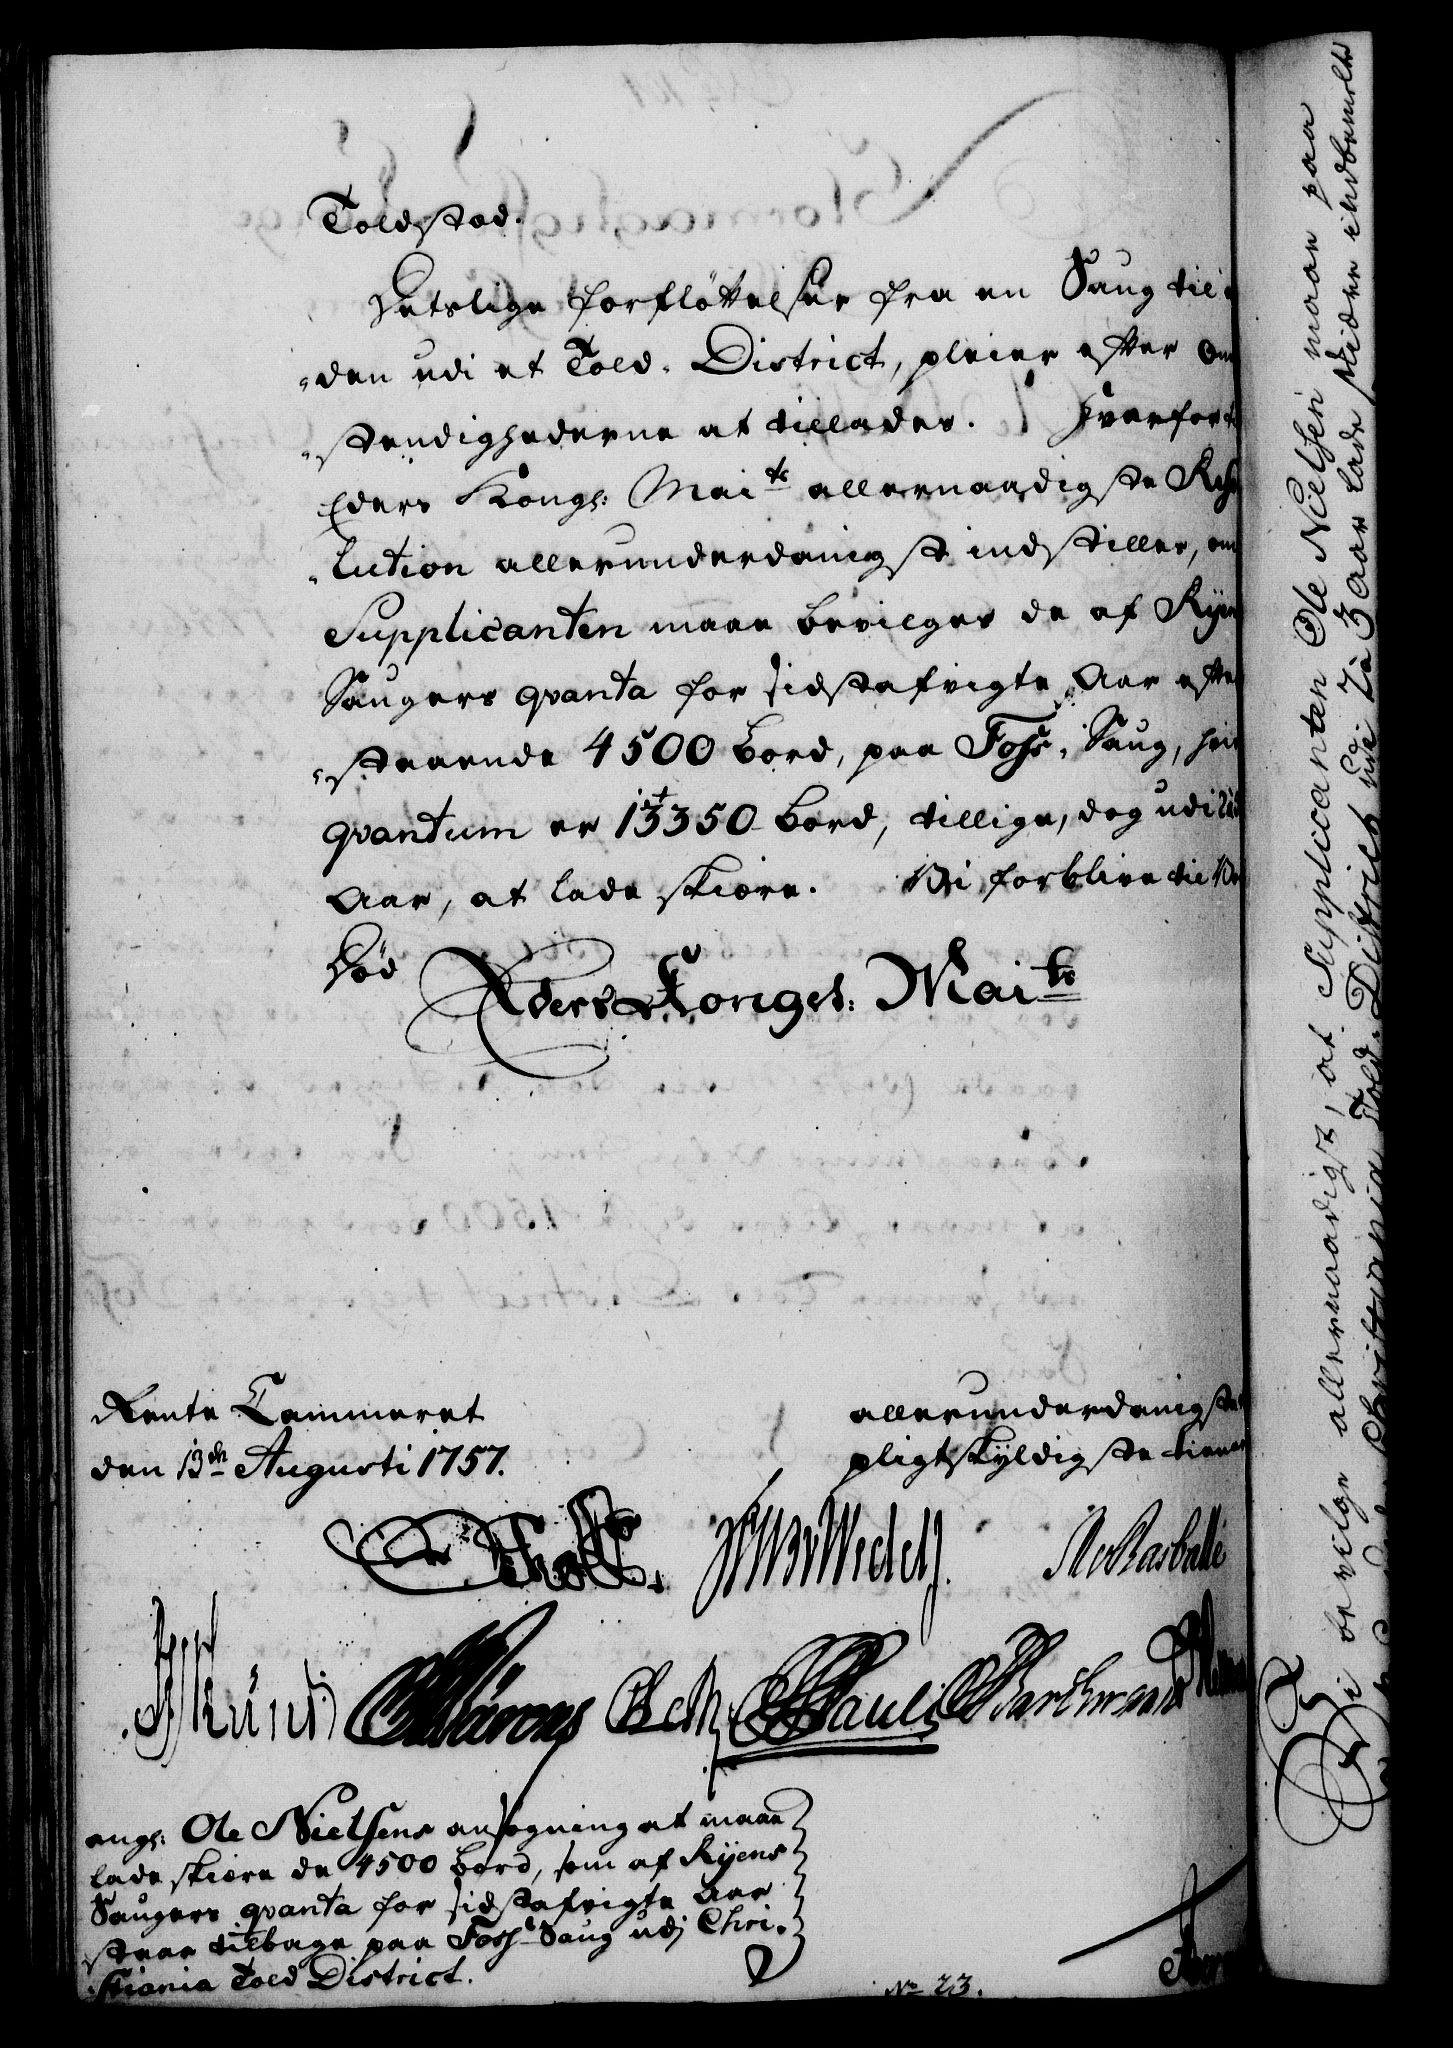 Toldsted.
Detslige forfløttelser fra en Saug til
"den udi et Told-District, pleier efter Om
"stendighederne at tillades. Hvorfor
Eders Kongl: Maits allernaadigste Reso
"lution allerunderdanigst indstilles, om
Supplicanten maae bevilges de af Ryens
Saugers qvanta for sidstafvigte Aar efter
"staaende 4500 bord, paa Foss-Saug, hvis
qvantum er 13350 bord, tillige, dog udi
Aar, at lade skiære. Vi forblive til vor
Død
Eders Kongel: Maits
Rente Cammeret
den 13de Augusti 1757.
allerunderdanigste
pligtskyldigste tienere
Wedell
Rasballe
Pauli
angl: Ole Nielsens ansøgning at maae
lade skiære de 4500 bord, som af Ryens
Saugers qvanta for sidstafvigte Aar
staar tilbage paa Foss-Saug udj Chri-
stiania Told District.
No 23.
Vi bevilge allernaadigst, at Supplicanten Ole Nielsen maae paa
Christiania Told-District udi 2 à 3 Aar lade skiære indbemelte